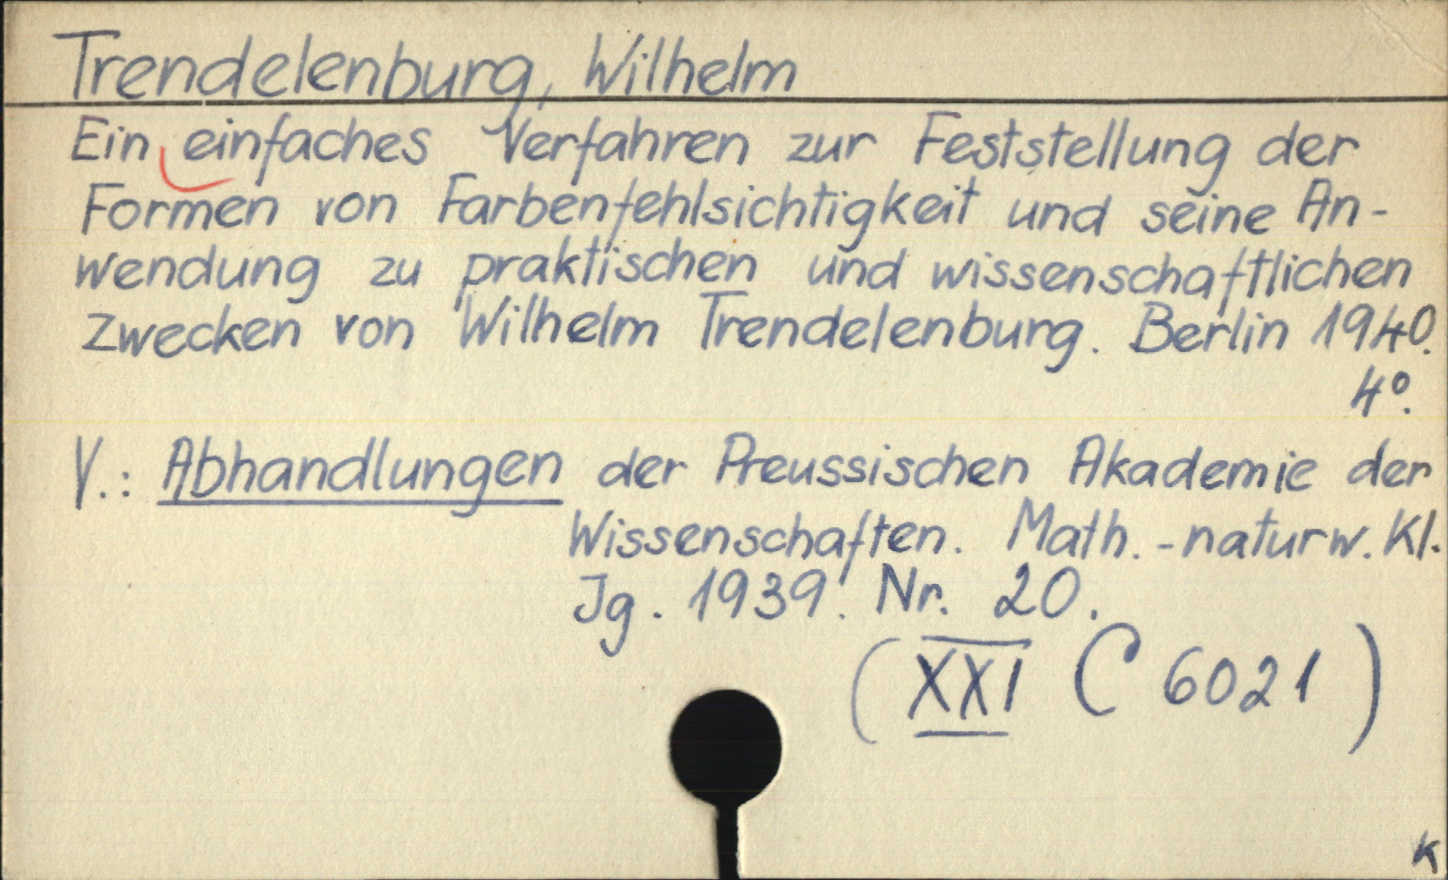 Trendelenburg, Wilhelm
Ein einfaches Verfahren zur Feststellung der
Formen von Farbenfehlsichtigkeit und seine An-
wendung zu praktischen und wissenschaftlichen
Zwecken von Wilhelm Trendelenburg. Berlin 1940.
4°.
V.: Abhandlungen der Preussischen Akademie der
Wissenschaften. Math.-naturw. Kl.
Jg. 1939. Nr. 20.
(XXI C 6021)
K